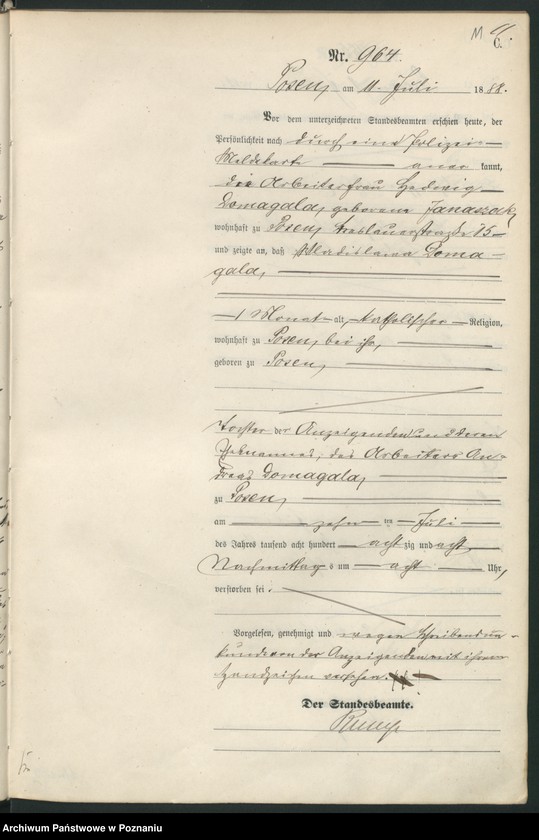 C.
Nr. 964.
Posen, am 11. Juli 1888.
Vor dem unterzeichneten Standesbeamten erschien heute, der
Persönlichkeit nach durch eine Polizei-
Meldekarte aner kannt,
die Arbeiterfrau Hedwig
Domagala, geborene Janaszak,
wohnhaft zu Posen, Breslauerstraße 15
und zeigte an, daß Wladislawa Doma-
gala,
1 Monat alt, katholischer Religion,
wohnhaft zu Posen, bei ihr,
geboren zu Posen,
Tochter der Anzeigenden und deren
Ehemannes, des Arbeiters An-
dreas Domagala,
zu Posen,
am zehn ten Juli
des Jahres tausend acht hundert achtzig und acht,
Nachmittags um acht Uhr,
verstorben sei.
Vorgelesen, genehmigt und wegen Schreibensun-
kunde von der Anzeigenden mit ihrem
Handzeichen versehen. +++
Der Standesbeamte.
Archiwum Państwowe w Poznaniu